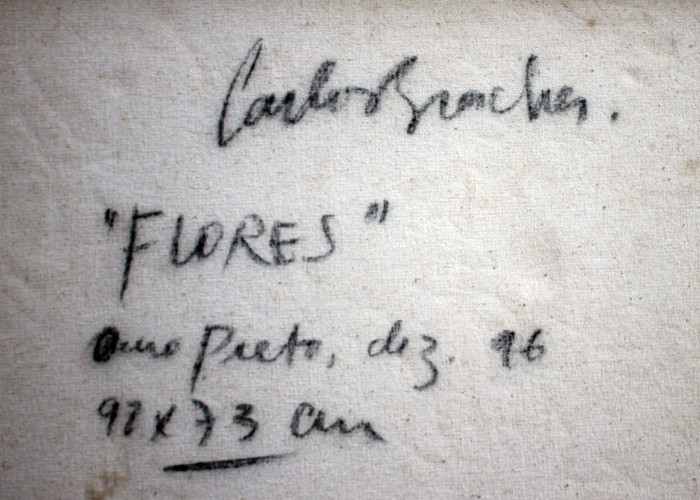 Carlos Bracher.
"FLORES"
Ouro Preto, dez. 96
92 x 73 cm